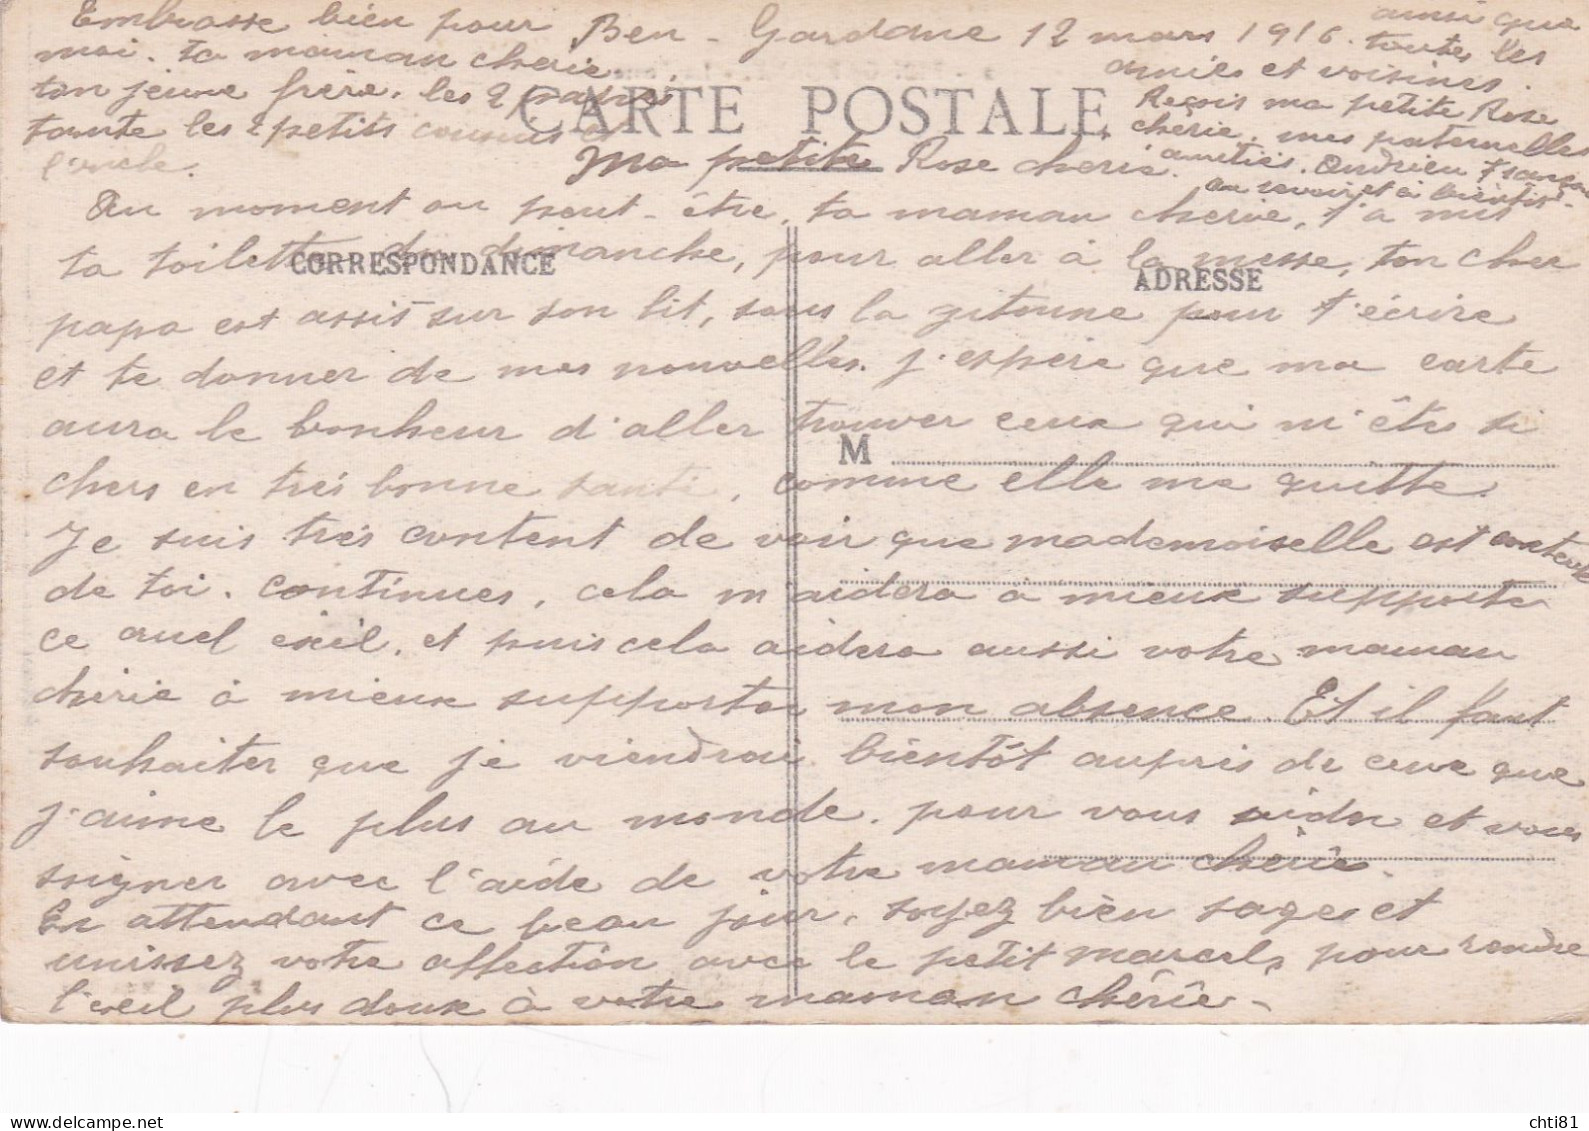 Ben-Gardane 12 mars 1916.
CARTE POSTALE
Ma petite Rose cherie.
Au moment ou peut-être, ta maman cherie, t'a mis
ta toilette du dimanche, pour aller à la messe, ton cher
CORRESPONDANCE
ADRESSE
papa est assis sur son lit, sous la gitoune pour t'écrire
et te donner de mes nouvelles. j'espère que ma carte
aura le bonheur d'aller trouver ceux qui m'êtes si
M
chers en très bonne santé, comme elle me quitte.
Je suis très content de voir que mademoiselle est contente
de toi. continues, cela m'aidera à mieux supporter
ce cruel exil. et puis cela aidera aussi votre maman
chérie à mieux supporter mon absence. Et il faut
souhaiter que je viendrai bientôt auprès de ceux que
j'aime le plus au monde. pour vous aider et vous
soigner avec l'aide de votre maman chérie.
En attendant ce beau jour, soyez bien sages et
unissez votre affection avec le petit marcel, pour rendre
l'exil plus doux à votre maman chérie-
Embrasse bien pour
moi. ta maman cherie.
ton jeune frère. les 2
tante les 2 petits cousins
l'oncle.
ainsi que
toutes les
amies et voisines.
Reçois ma petite Rose
chérie. mes paternelles
amitiés.
au revoir et à bientôt.
chti81